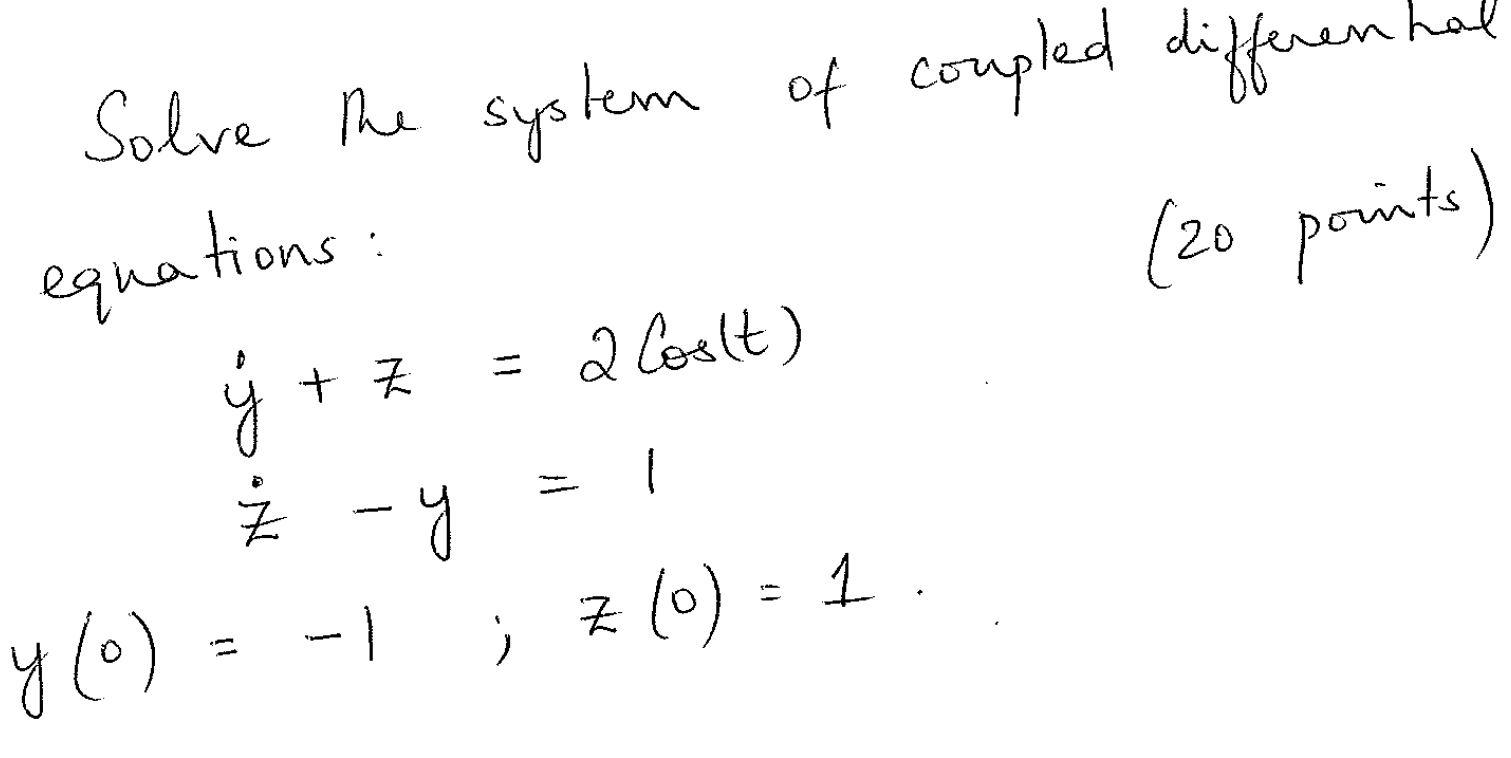 Solve the system of coupled differential
equations : (20 points)
ẏ + z = 2 Cos(t)
ż - y = 1
y(0) = -1 ; z(0) = 1 .